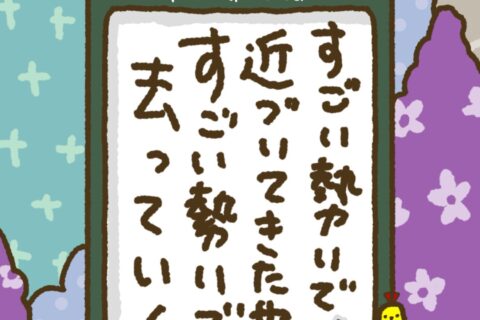 すごい熱かいで
近づいてきた
すごい勢いで
去っていく